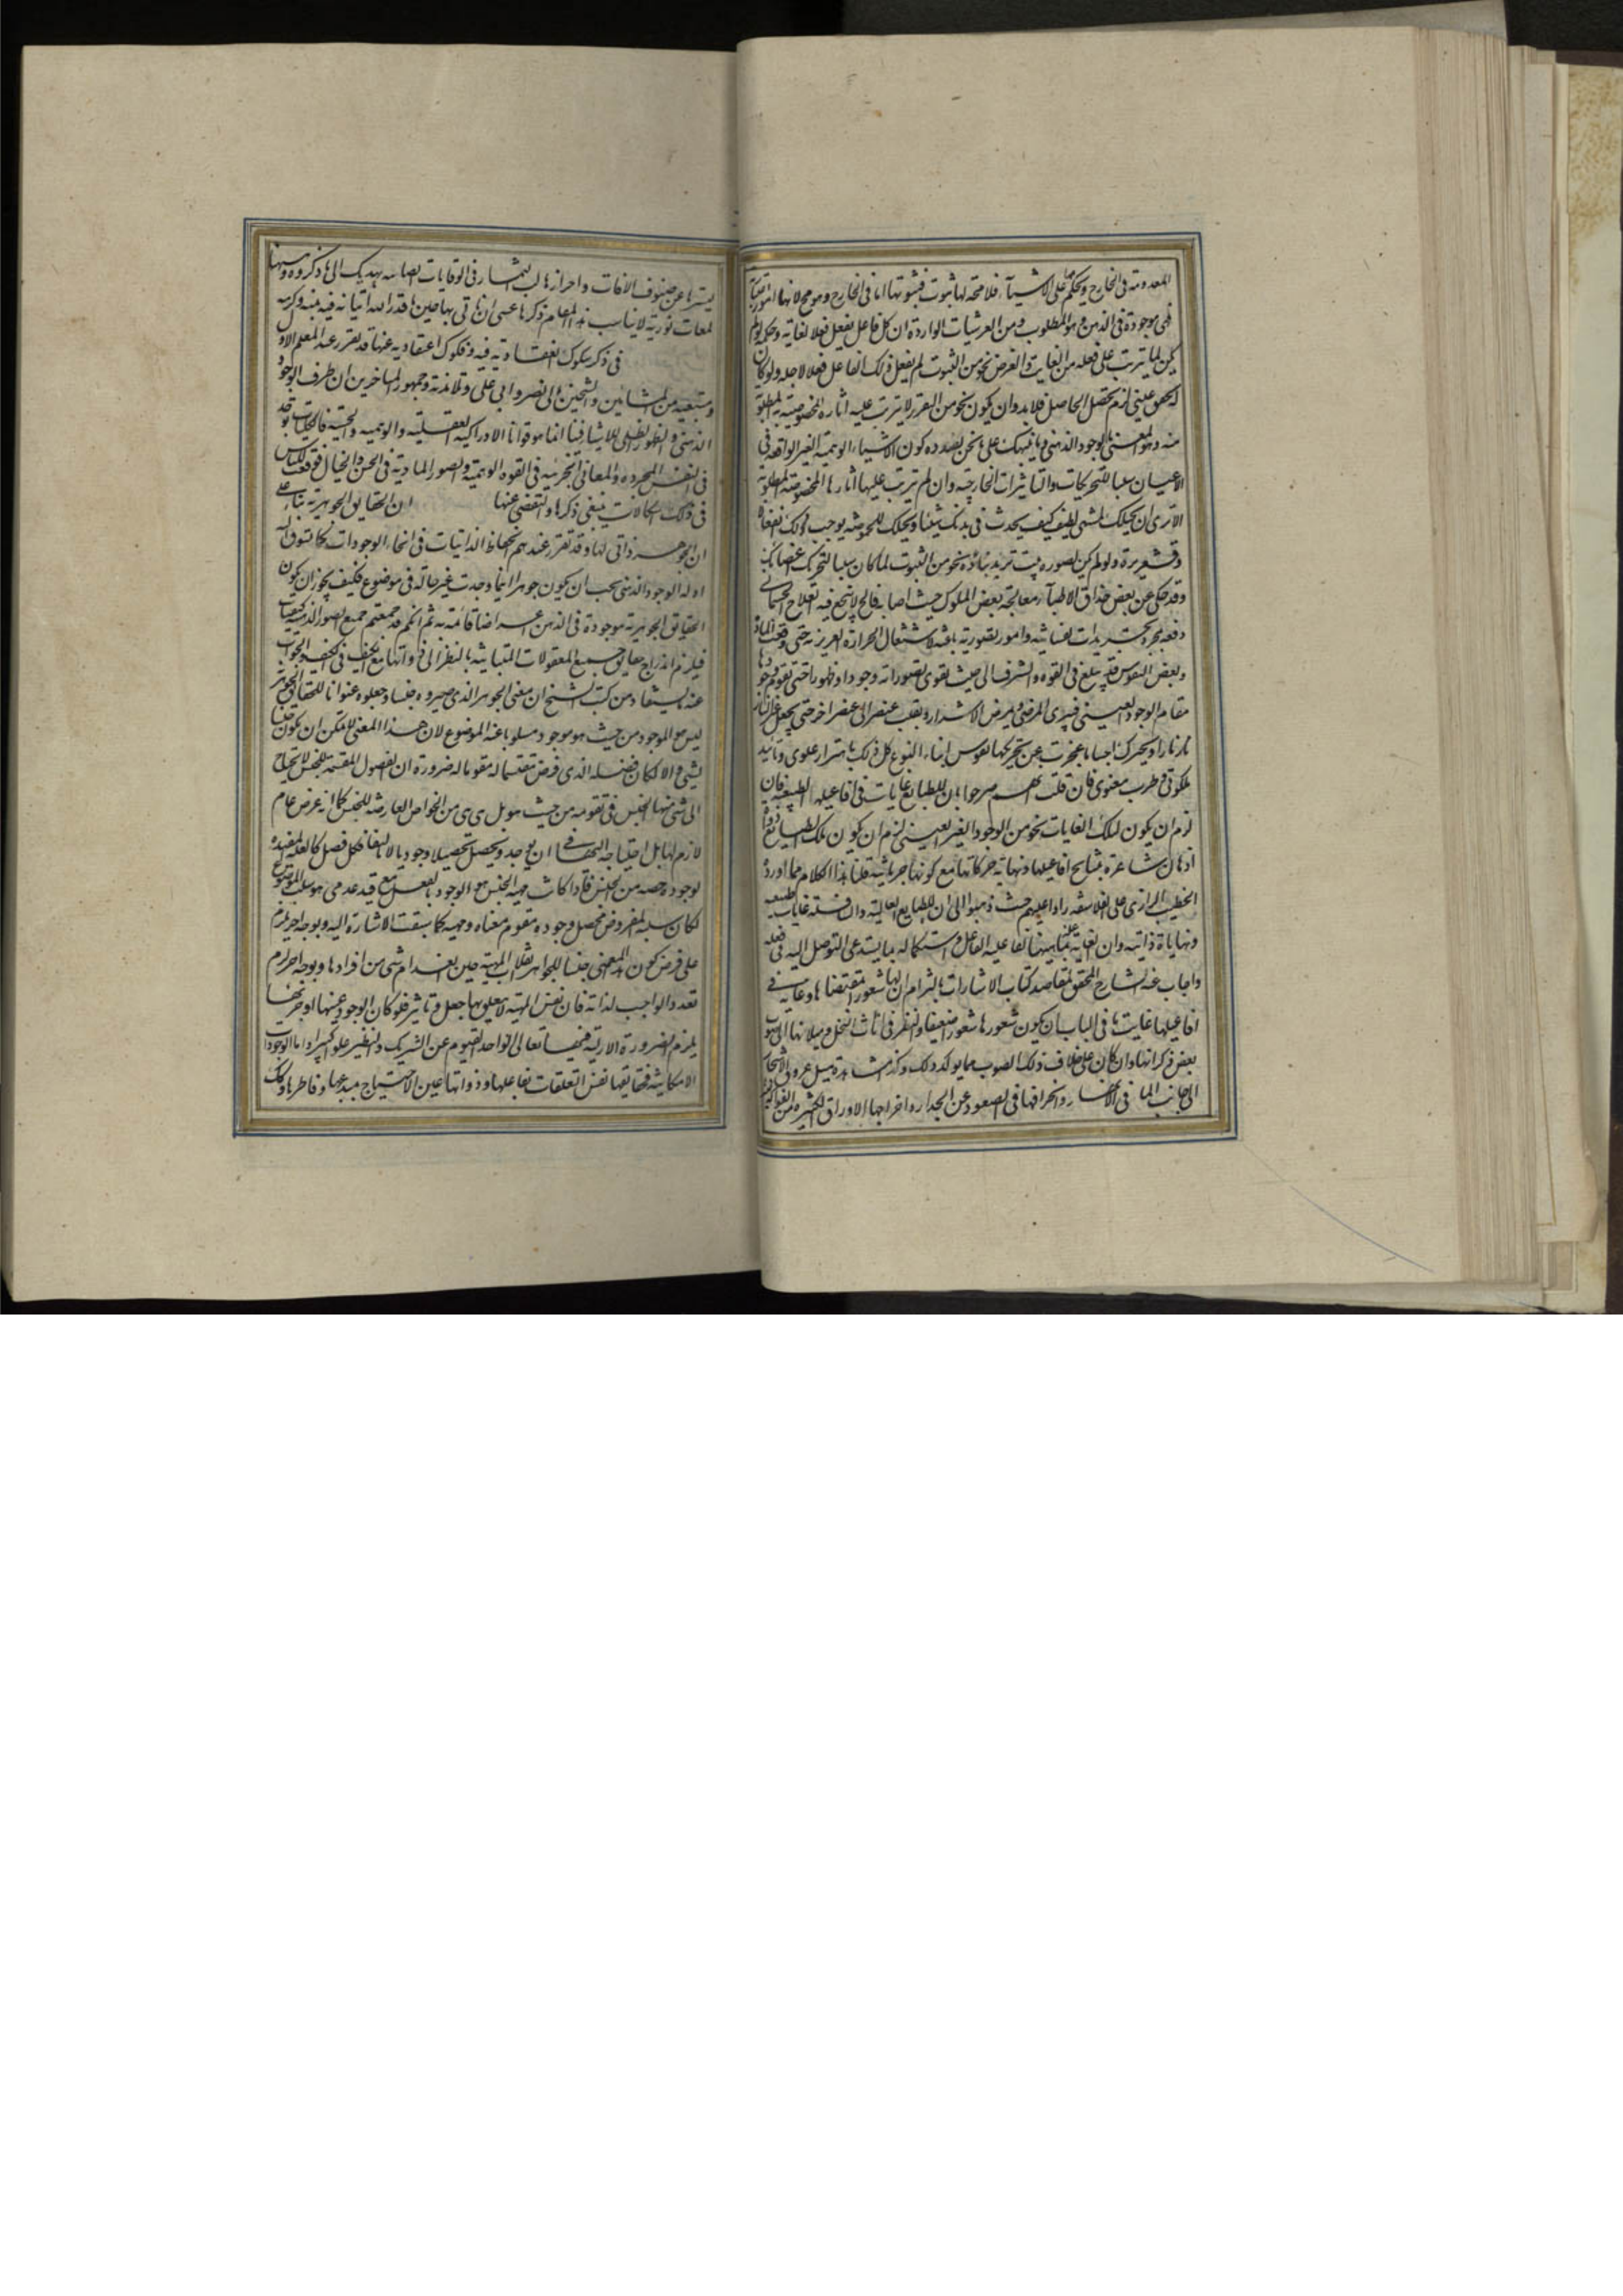 المعدومة فى الخارج ويحكم بها على الاشياء فلا محة لها ثبوت فثبوتها اما فى الخارج وهو مح لانها
فهى موجودة فى الذهن وهو المطلوب ومن العرشيات الواردة ان كل فاعل يفعل فعلا لغاية وحكمة لو لم
يكن لما يترتب على فعله من الغايت والغرض نحو من الثبوت لم يفعل ذلك الفاعل فعلا لاجله ولو كان
له تحقق عينى لزم تحصل الحاصل فلا بد وان يكون نحو من التقرر لا يترتب عليه اثاره المخصوصة به المطلوبة
منه وهو المعنى بالوجود الذهنى ومما ينبهك على ما نحن بصدده كون الاشياء الوهمية الغير الواقعة فى
الاعيان سببا للتحريكات والتاثيرات الخارجية وان لم ترتب عليها اثارها المخصوصة المطلوبة
الا ترى ان تخيلك لمشتهى لطيف كيف يحدث فى بدنك شيئا وتخيلك للحموضة يوجب لك انفعالا
وقشعريرة ولو لم يكن لصورة بيت تريد بناؤه نحو من الثبوت لما كان سببا لتحرك اعضائك
وقد حكى عن بعض حذاق الاطباء معالجة بعض الملوك حيث اصابه فالج لا ينجع فيه العلاج الجسمانى
دفعة بمجرد تدبيرات نفسانية وامور تصورية باعثة لاشتعال الحرارة الغريزية حتى دفعت المادة
وبعض النفوس قد يبلغ فى القوه والشرف الى حيث يقوى تصوراته وجودا وظهورا حتى تقوم وجودها
مقام الوجود العينى فيبرئ المرضى ويمرض الاشرار ويقلب عنصرا الى عنصر اخر حتى يجعل غير النار
نارا ويحرك اجساما عجزت عن تحريكها نفوس ابناء النوع كل ذلك باهتزاز علوى وتاييد
ملكوتى وطرب معنوى فان قلت انهم صرحوا بان للطبايع غايات فى افاعيلها الطبيعية فان
لزم ان يكون لتلك الغايات نحو من الوجود الغير العينى لزم ان يكون تلك الطبايع ذوات
اذهان شاعرة بنتايج افاعيلها ونهاية حركاتها مع كونها جرمانية قلنا هذا الكلام مما اورده
الخطيب الرازى على الفلاسفة رادا عليهم حيث ذهبوا الى ان للطبايع العالية والسافلة غايات طبيعية
ونهايات ذاتية وان الغاية علة بماهيتها لفاعلية الفاعل واستكماله بما يستدعى التوصل اليه فى فعله
واجاب عنه الشارح المحقق لمقاصد كتاب الاشارات بالتزام ان لها شعورا بمقتضاها وغاية فى
افاعيلها غايت ما فى الباب ان يكون شعورها شعورا ضعيفا والنظر فى اناث النخل وميلانها الى صوب
بعض ذكرانها وان كان على خلاف ذلك الصوب مما يوكد ذلك وكذا مشاهدة ميل عروق الاشجار
الى جانب الما فى الانهار وانحرافها فى الصعود عن الجدار واخراجها الاوراق الكثيرة بين الفواكه
ليسترها عن صنوف الافات واحرازها لب الثمار فى الوقايات الصائنة يهديك الى ما ذكروه وههنا
لمعات نورية لا يناسب هذا المقام ذكرها عسى ان ناتى بها حين ما قدر الله اتيانه فيه بمنه وكرمه
فى ذكر شكوك انعقادية فيه وفكوك اعتقادية عنها قد تقرر عند المعلم الاول
ومتبعيه من المشائين والشيخين ابى نصر وابى على وتلامذته وجمهور المتاخرين ان ظرف الوجود
الذهنى والظهور الظلى للاشياء فينا انما هو قوانا الادراكية العقلية والوهمية والحسية فالكليات توجد
فى النفس المجرده والمعانى الجزئية فى القوه الوهمية والصور المادية فى الحس والخيال فوقعت للناس
فى ذلك اشكالات ينبغى ذكرها والتفصى عنها ان الحقايق الجوهرية بناء على
ان الجوهر ذاتى لها وقد تقرر عندهم انحفاظ الذاتيات فى انحاء الوجودات كما يسوق اليه
ادلة الوجود الذهنى يجب ان يكون جوهرا اينما وجدت غير حالة فى موضوع فكيف يجوز ان يكون
الحقايق الجوهرية موجودة فى الذهن اعراضا قائمة به ثم انكم قد جمعتم جميع الصور الذهنية كيفيات
فيلزم اندراج حقايق جميع المعقولات المتباينة بالنظر الى ذواتها مع الكيف فى الكيف والجواب
عنه يستفاد من كتب الشيخ ان معنى الجوهر الذى صيروه جنسا وجعلوه عنوانا للحقايق الجوهرية
ليس هو الموجود من حيث هو موجود مسلوبا عنه الموضوع لان هذا المعنى لا يمكن ان يكون جنسا
لشئ والا لكان فصله الذى فرض مقسما له مقوما له ضرورة ان الفصول المقسمة للجنس لا يحتاج
الى شئ منها الجنس فى تقومه من حيث هو بل هى من الخواص العارضة للجنس كما انه عرض عام
لازم لها بل احتياجه اليها فى ان يوجد ويحصل تحصيلا وجوديا لا الفا فكل فصل كالعلة المفيدة
لوجود حصة من الجنس فاذا كانت مهية الجنس هو الوجود بالفعل مع قيد عدمى هو سلب الموضوع
لكان سببه المفروض محصل وجوده مقوم معناه ومهيته كما سبقت الاشارة اليه وبوجه اخر يلزم
على فرض كون هذا المعنى جنسا للجواهر انقلاب المهية حين انعدام شئ من افرادها وبوجه اخر لزم
تعدد الواجب لذاته فان نفس المهية لا يتعلق بها جعل وتاثير فلو كان الوجود عينها او جزئها
يلزم الضرورة الازلية فيها تعالى الواحد القيوم عن الشريك والنظير علوا كبيرا واما الوجودات
الامكانية فحقايقها نفس التعلقات بفاعلها وذواتها عين الاحتياج بمبدعها وفاطرها وتلك